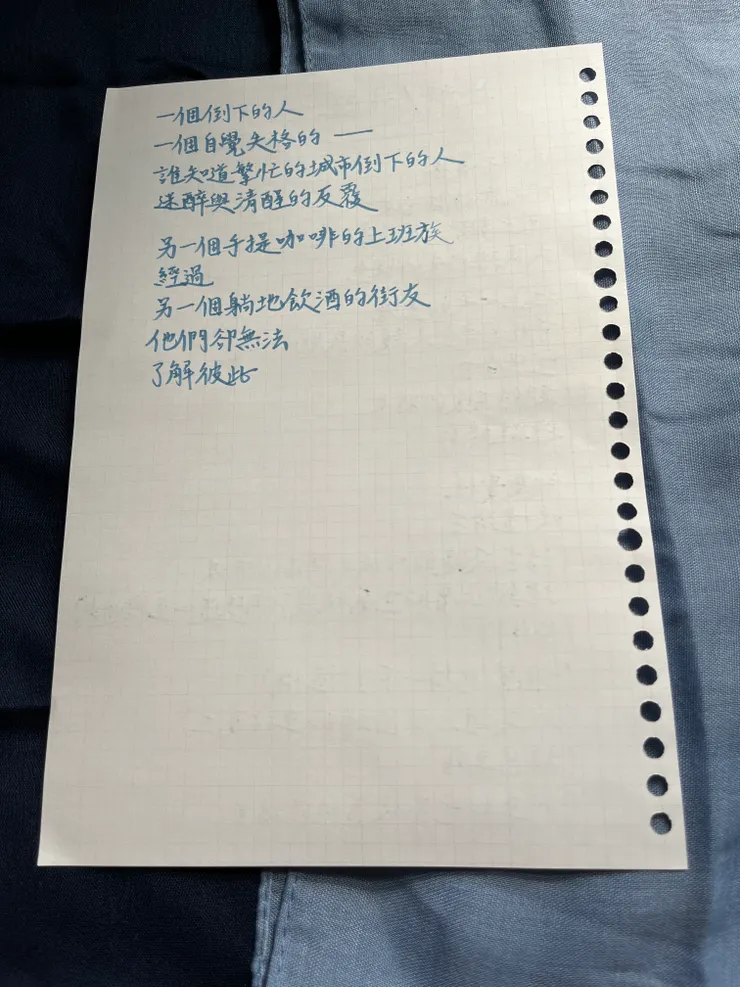 一個倒下的人
一個自覺失格的——
誰知道繁忙的城市倒下的人
迷醉與清醒的反覆
另一個手提咖啡的上班族
經過
另一個躺地飲酒的街友
他們卻無法
了解彼此